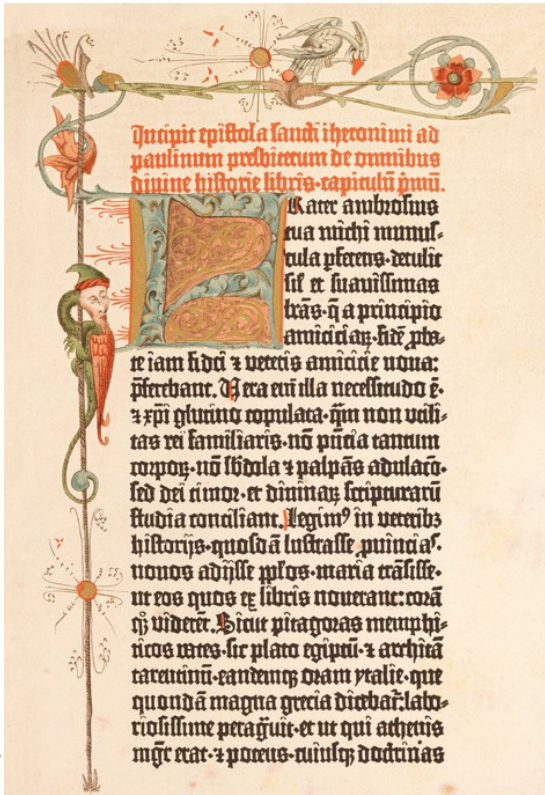 Incipit epistola sancti iheronimi ad
paulinum presbiterum de omnibus
divine historie libris·capitulū pmū.
Frater ambrosius
tua michi munus-
cula pferens·detulit
sil' et suavissimas
lrās·q̄ a principio
amiciciaꝝ·fidē pba-
te iam fidei ⁊ veteris amicicie nova:
pferebant. Vera eni illa necessitudo ē·
⁊ xpi glutino copulata·qm̄ non utili-
tas rei familiaris·nō pn̄tia tantum
corpoꝝ·nō sb̄dola ⁊ palpās adulacō·
sed dei timor·et divinaꝝ scripturarū
studia conciliant. Legimꝰ in veteribꝫ
historijs·quosdā lustrasse puincias·
novos adijsse pplos·maria trāsisse·
ut eos quos ex libris noverant: corā
qꝫ viderēt. Sicut pitagoras memphi-
ticos vates·sic plato egiptū·⁊ architā
tarentinū·eandemqꝫ oram ytalie·que
quondā magna grecia dicebat̄: labo-
riosissime peragᷓvit·et ut qui athenis
mgr̄ erat·⁊ potens·cuiusqꝫ doctrinas